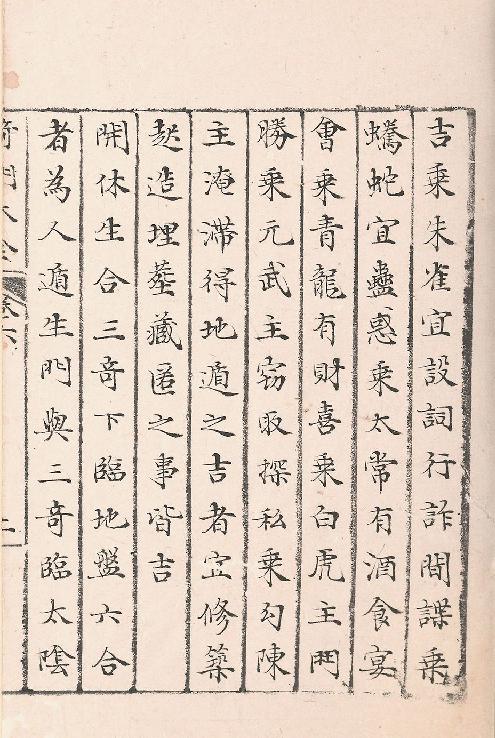 吉乘朱雀宜設詞行詐間諜乘
螣蛇宜蠱惑乘太常有酒食宴
會乘青龍有財喜乘白虎主鬥
勝乘元武主竊取探私乘勾陳
主淹滯得地遁之吉者宜修築
起造埋塟藏匿之事皆吉
開休生合三奇下臨地盤六合
者為人遁生門與三奇臨太陰
奇門大全 卷六 二